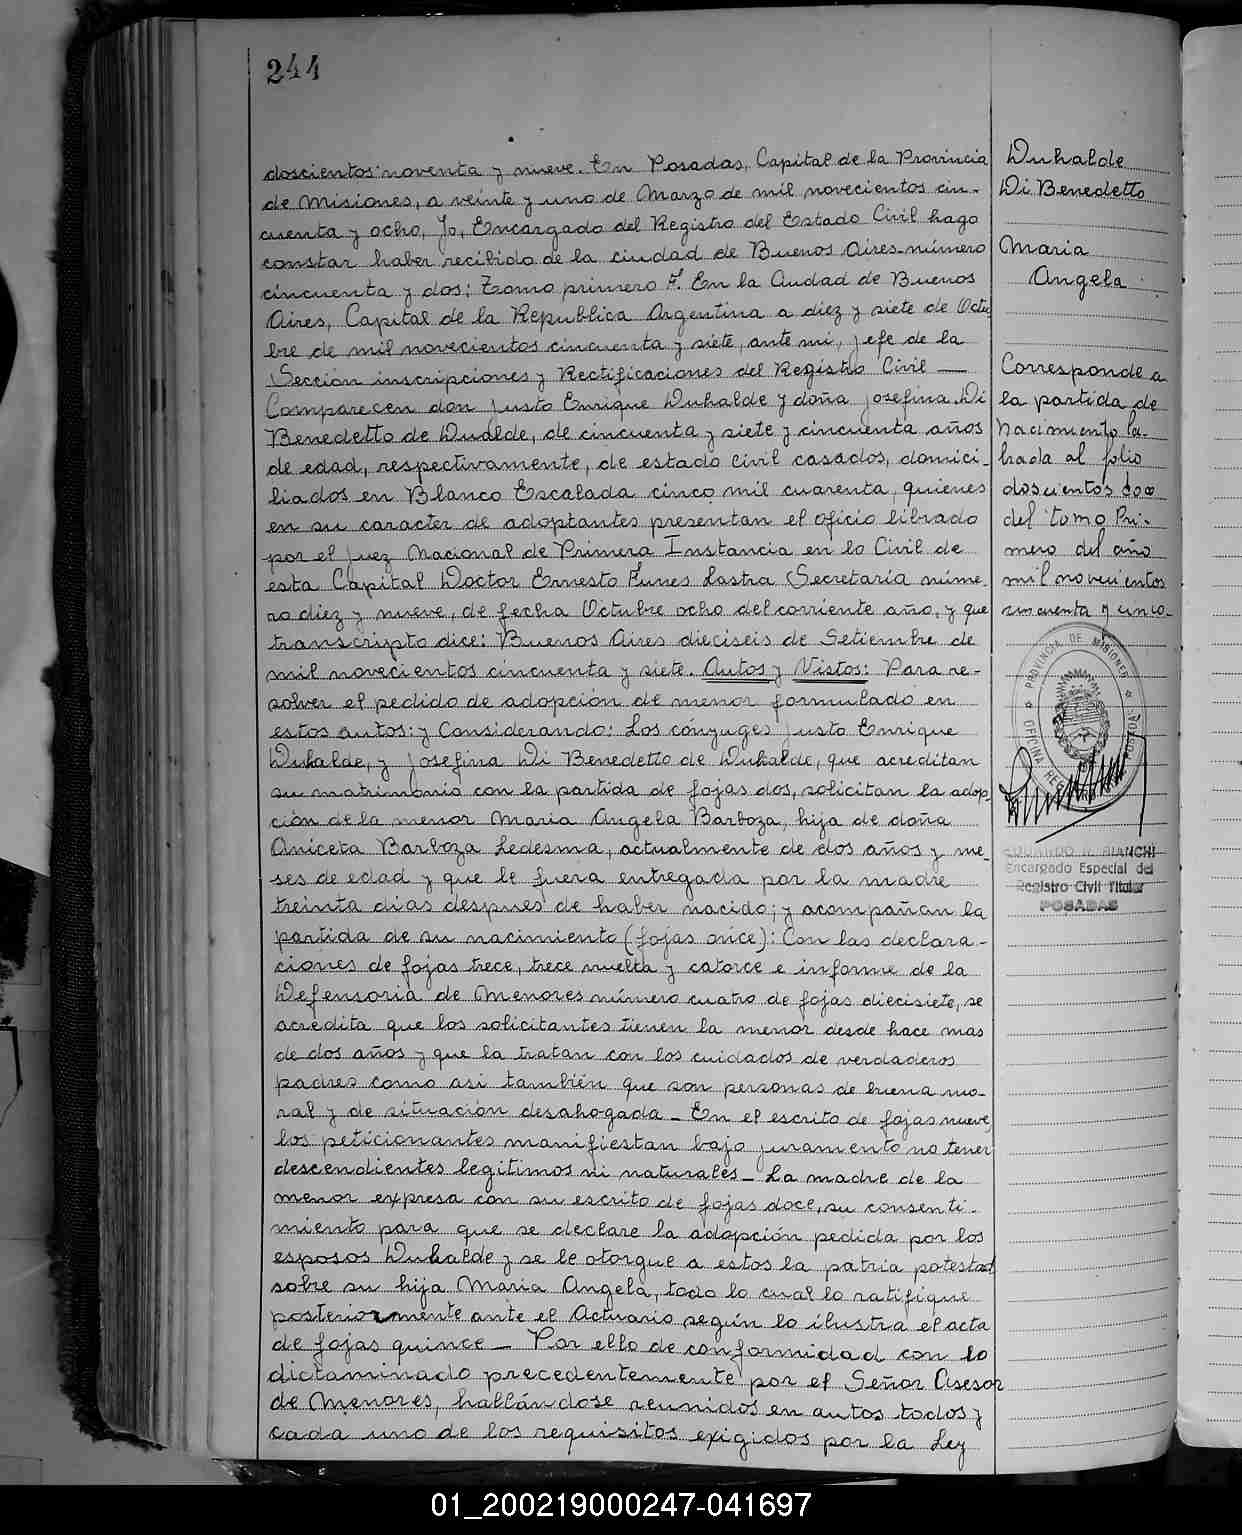 244
doscientos noventa y nueve. En Posadas, Capital de la Provincia
de Misiones, a veinte y uno de Marzo de mil novecientos cin-
cuenta y ocho, Yo, Encargado del Registro del Estado Civil hago
constar haber recibido de la ciudad de Buenos Aires número
cincuenta y dos; Tomo primero F. En la Ciudad de Buenos
Aires, Capital de la Republica Argentina a diez y siete de Octu
bre de mil novecientos cincuenta y siete, ante mi, Jefe de la
Sección inscripciones y Rectificaciones del Registro Civil —
Comparecen don Justo Enrique Duhalde y doña Josefina Di
Benedetto de Dualde, de cincuenta y siete y cincuenta años
de edad, respectivamente, de estado civil casados, domici-
liados en Blanco Escalada cinco mil cuarenta, quienes
en su caracter de adoptantes presentan el oficio librado
por el Juez Nacional de Primera Instancia en lo Civil de
esta Capital Doctor Ernesto Funes Lastra Secretaria núme-
ro diez y nueve, de fecha Octubre ocho del corriente año, y que
transcripto dice: Buenos Aires dieciseis de Setiembre de
mil novecientos cincuenta y siete. Autos y Vistos: Para re-
solver el pedido de adopción de menor formulado en
estos autos: y Considerando: Los cónyuges Justo Enrique
Duhalde, y Josefina Di Benedetto de Duhalde, que acreditan
su matrimonio con la partida de fojas dos, solicitan la adop-
ción de la menor Maria Angela Barboza, hija de doña
Aniceta Barboza Ledesma, actualmente de dos años y me-
ses de edad y que le fuera entregada por la madre
treinta dias despues de haber nacido; y acompañan la
partida de su nacimiento (fojas once): Con las declara-
ciones de fojas trece, trece vuelta y catorce e informe de la
Defensoria de Menores número cuatro de fojas diecisiete, se
acredita que los solicitantes tienen la menor desde hace mas
de dos años y que la tratan con los cuidados de verdaderos
padres como asi también que son personas de buena mo-
ral y de situación desahogada — En el escrito de fojas nueve,
los peticionantes manifiestan bajo juramento no tener
descendientes legitimos ni naturales — La madre de la
menor expresa con su escrito de fojas doce, su consenti-
miento para que se declare la adopción pedida por los
esposos Duhalde y se le otorgue a estos la patria potestad
sobre su hija Maria Angela, todo lo cual lo ratifique
posteriormente ante el Actuario según lo ilustra el acta
de fojas quince — Por ello de conformidad con lo
dictaminado precedentemente por el Señor Asesor
de Menores, hallándose reunidos en autos todos y
cada uno de los requisitos exigidos por la Ley
Duhalde
Di Benedetto
Maria
Angela
Corresponde a
la partida de
nacimiento la-
brada al folio
doscientos dos
del tomo Pri-
mero del año
mil novecientos
cincuenta y cinco.
PROVINCIA DE MISIONES
OFICINA
POSADAS
EDUARDO R. BIANCHI
Encargado Especial del
Registro Civil Titular
POSADAS
01_200219000247-041697